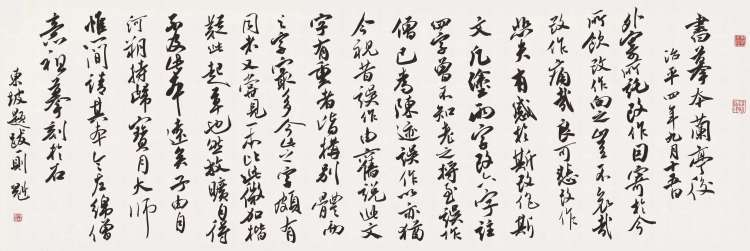 書摹本蘭亭後
治平四年九月十五日
外寄所託改作因寄於今
所欣改作向之豈不哀哉
改作痛哉良可悲改作
悲夫有感於斯改作斯
文凡塗兩字改六字註
四字曾不知老之將至誤作
僧已為陳迹誤作以亦猶
今視昔誤作由舊說此文
字有重者皆構別體而
之字最多今此之字頗有
同者又嘗見一本比此微加楷
疑此起草也然放曠自得
不及此本遠矣子由自
河朔持歸寶月大師
惟簡請其本令左綿僧
意祖摹刻於石
東坡題跋一則 魁